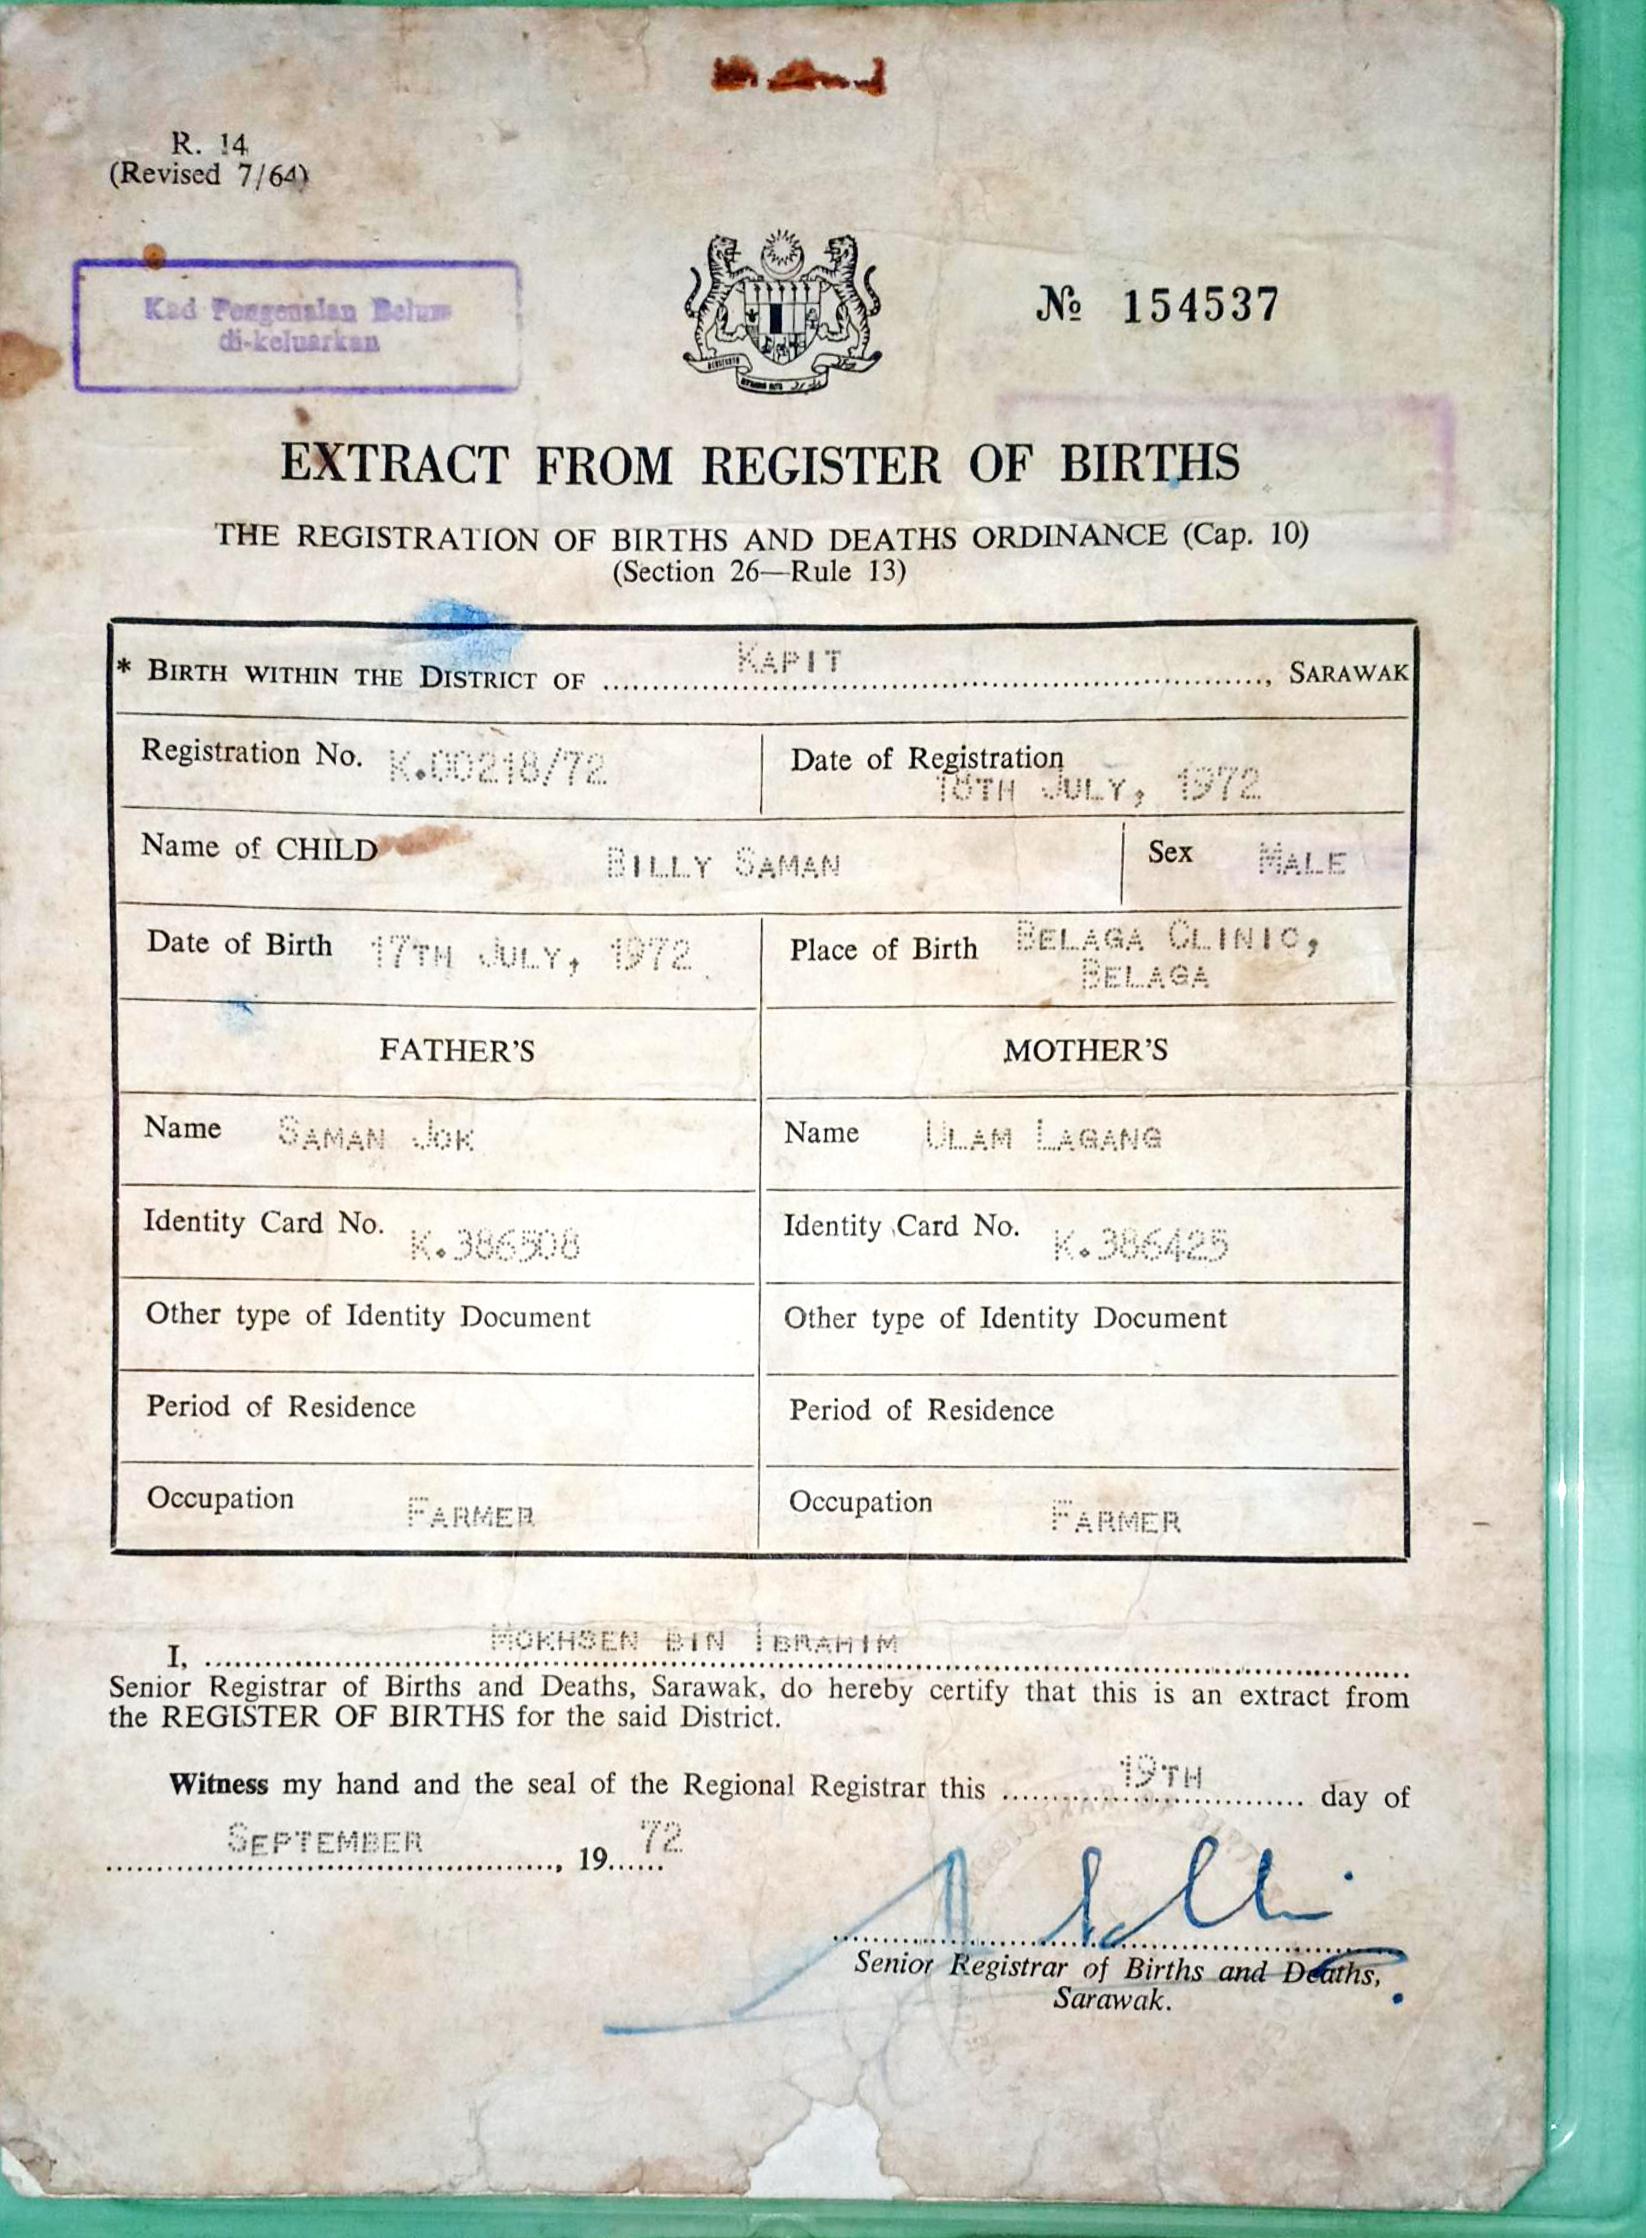 R. 14
(Revised 7/64)
Kad Pengenalan Belum
di-keluarkan
№ 154537
EXTRACT FROM REGISTER OF BIRTHS
THE REGISTRATION OF BIRTHS AND DEATHS ORDINANCE (Cap. 10)
(Section 26—Rule 13)
* BIRTH WITHIN THE DISTRICT OF KAPIT, SARAWAK
Registration No. K.00218/72
Date of Registration
18TH JULY, 1972
Name of CHILD BILLY SAMAN
Sex MALE
Date of Birth 17TH JULY, 1972
Place of Birth BELAGA CLINIC,
BELAGA
FATHER'S
MOTHER'S
Name SAMAN JOK
Name ULAM LAGANG
Identity Card No. K.386508
Identity Card No. K.386425
Other type of Identity Document
Other type of Identity Document
Period of Residence
Period of Residence
Occupation FARMER
Occupation FARMER
I, MOKHSEN BIN IBRAHIM
Senior Registrar of Births and Deaths, Sarawak, do hereby certify that this is an extract from
the REGISTER OF BIRTHS for the said District.
Witness my hand and the seal of the Regional Registrar this 19TH day of
SEPTEMBER, 19 72
Senior Registrar of Births and Deaths,
Sarawak.